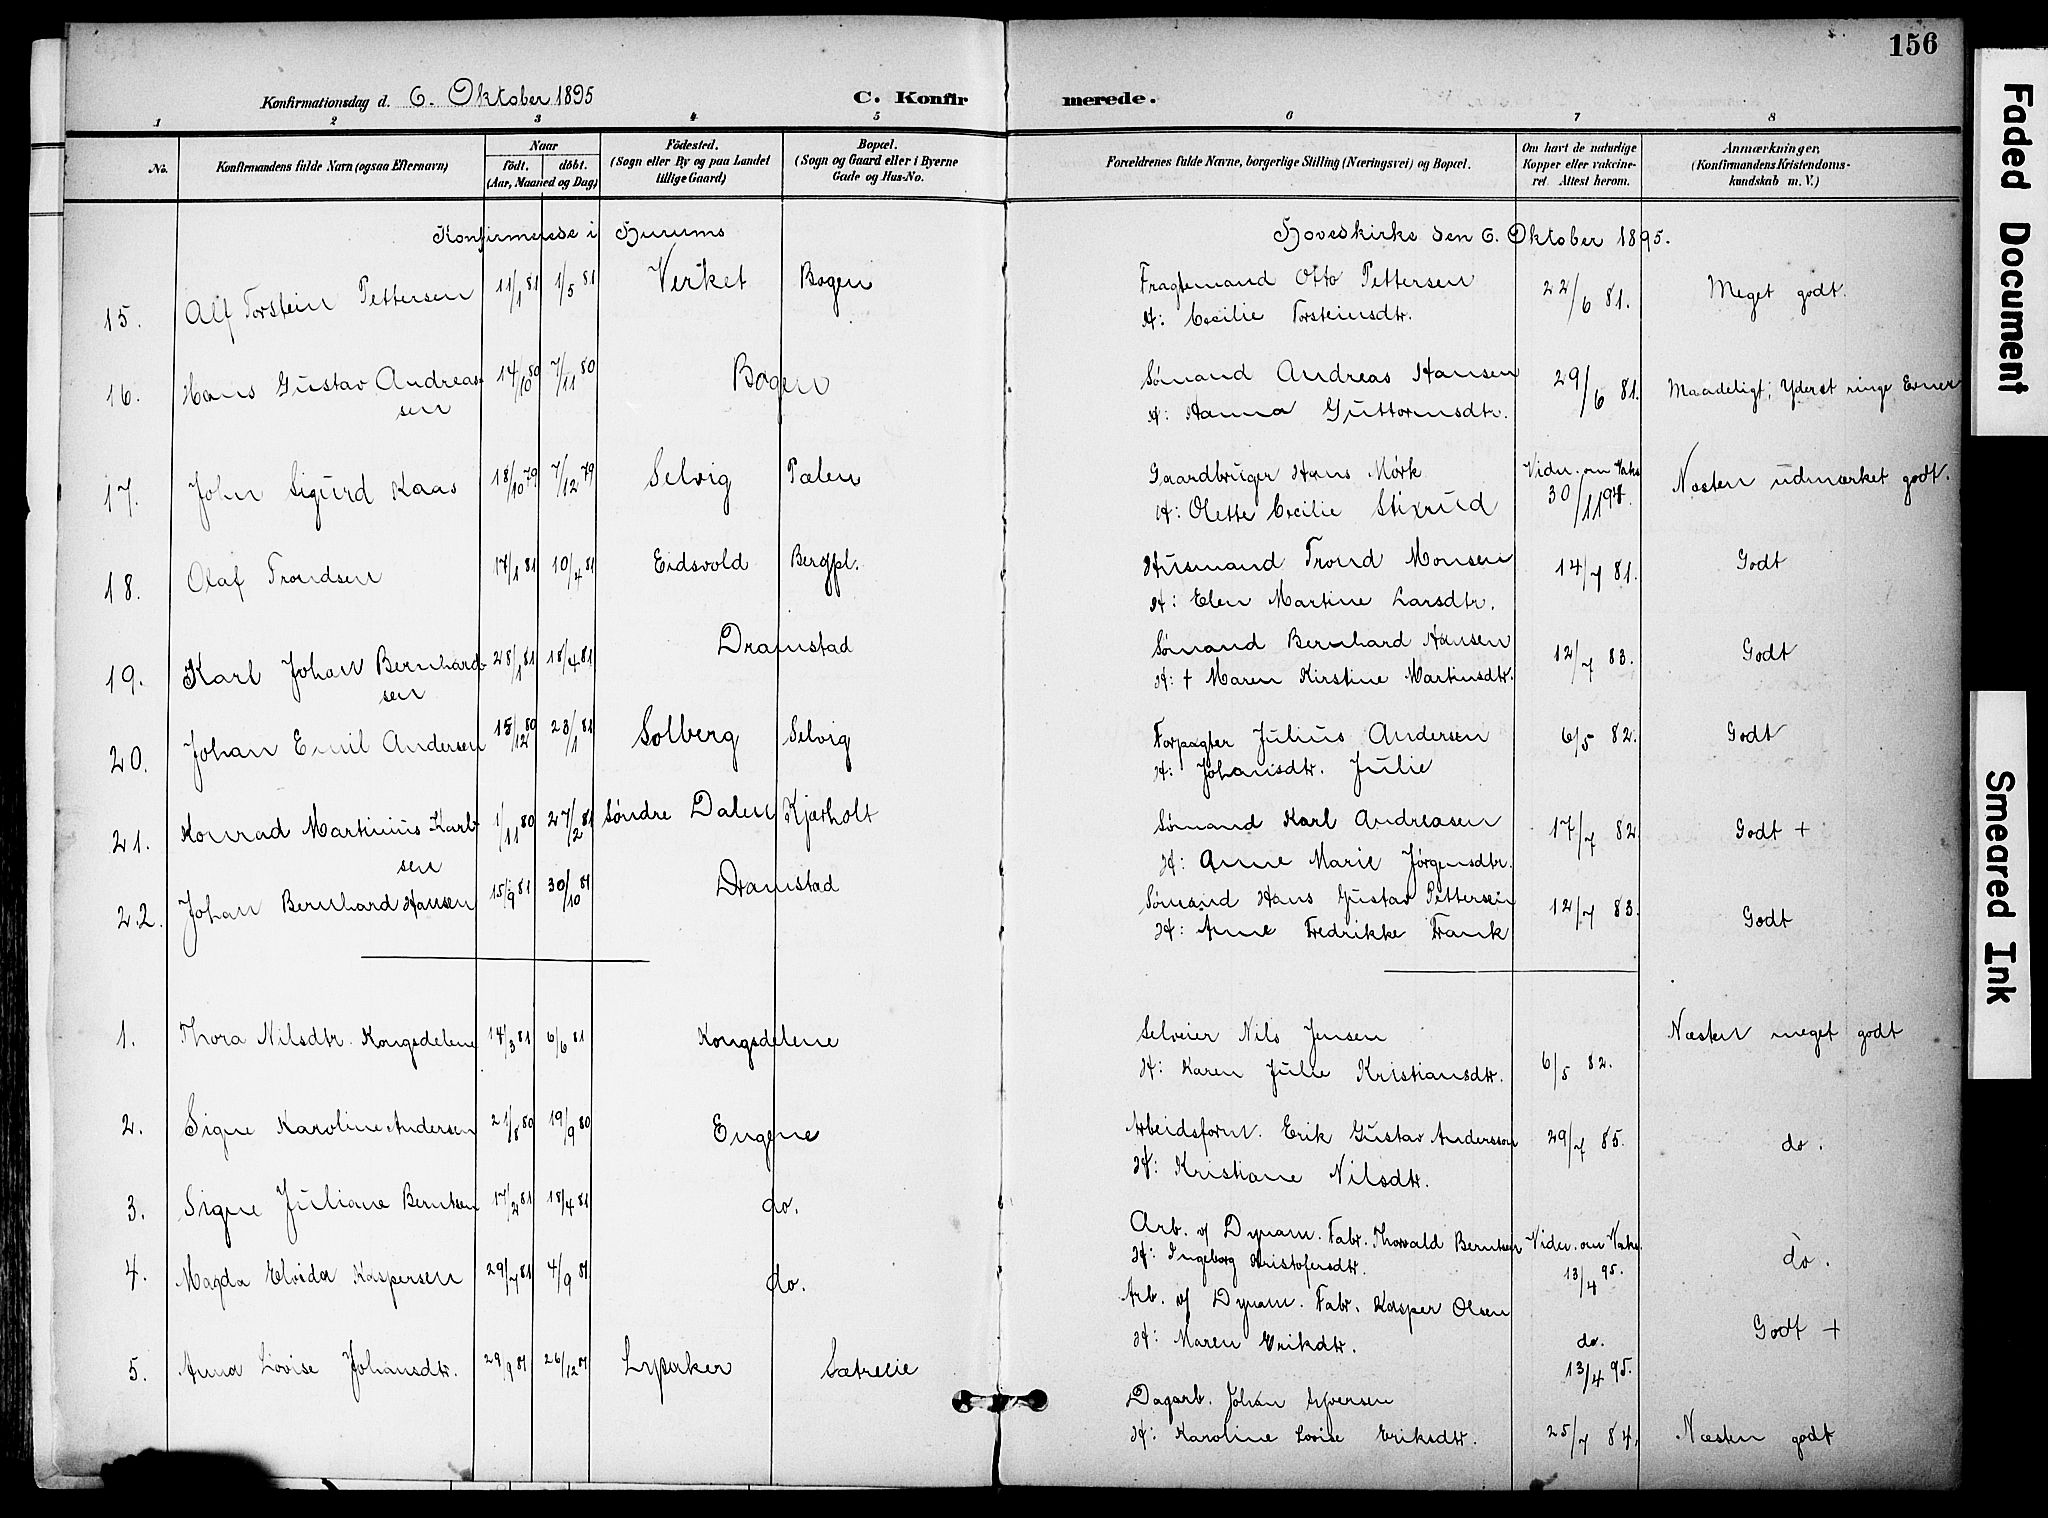 156
Konfirmationsdag d. 6. Oktober 1895 C. Konfirmerede.
1 2 3 4 5 6 7 8
No. Konfirmandens fulde Navn (ogsaa Efternavn) Naar født. døbt. (Aar, Maaned og Dag) Fødested. (Sogn eller By og paa Landet tillige Gaard) Bopæl. (Sogn og Gaard eller i Byerne Gade og Hus-No. Forældrenes fulde Navne, borgerlige Stilling (Næringsvei) og Bopæl. Om havt de naturlige Kopper eller vakcineret Attest herom. Anmærkninger, (Konfirmandens Kristendomskundskab m. V.)
Konfirmerede i Hurums Hovedkirke den 6. Oktober 1895.
15. Alf Torstein Pettersen 11/1 81 1/5 81 Verket Bogen Fragtemand Otto Pettersen 22/6 81. Meget godt.
H: Cecilie Torsteinsdtr.
16. Hans Gustav Andreas- 14/10 80 7/11 80 Bogen Sømand Andreas Hansen 29/6 81. Maadeligt; Yderst ringe Evner
sen H: Hanna Guttormsdtr.
17. John Sigurd Kaas 18/10 79 7/12 79 Selvig Pælen Gaardbruger Hans Mørk Vidn. om Vaks. 30/11 94. Næsten udmærket godt.
H: Olette Cecilie Stixrud
18. Olaf Trondsen 17/1 81 10/4 81 Eidsvold Bergpl. Husmand Trond Monsen 14/7 81. Godt
H: Elen Martine Larsdtr.
19. Karl Johan Bernhard- 28/1 81 18/4 81 Dramstad Sømand Bernhard Hansen 12/7 83. Godt
sen H: + Maren Kirstine Martinsdtr.
20. Johan Emil Andersen 15/12 80 23/1 81 Solberg Selvig Forpagter Julius Andersen 6/5 82. Godt
H: Johansdtr. Julie
21. Konrad Martinius Karl- 1/11 80 27/2 81 Søndre Dalen Kjærholt Sømand Karl Andreasen 17/7 82 Godt +
sen H: Anne Marie Jørgensdtr.
22. Johan Bernhard Hansen 15/9 81 30/10 81 Dramstad Sømand Hans Gustav Pettersen 12/7 83. Godt
H: Anne Fredrikke Frank
1. Thora Nilsdtr. Kongsdelene 14/3 81 6/6 81 Kongsdelene Selveier Nils Jensen 6/5 82. Næsten meget godt
H: Karen Julie Kristiansdtr.
2. Signe Karoline Andersen 21/8 80 19/9 80 Engene Arbeidsform. Erik Gustav Andersson 29/7 85. do.
H: Kristiane Nilsdtr.
3. Signe Juliane Berntsen 17/2 81 18/4 81 do. Arb. v/ Dynam. Fabr. Thorvald Berntsen Vidn. om Vaks. 13/4 95. do.
H: Ingeborg Kristofersdtr.
4. Magda Elvida Kaspersen 29/7 81 4/9 81 do. Arb. v/ Dynam. Fabr. Kasper Olsen do. 13/4 95. Godt +
H: Maren Erikdtr.
5. Anna Lovise Johansdtr. 29/9 81 26/12 81 Lysaker Sætreeie Dagarb. Johan Syversen 25/7 84. Næsten godt
H: Karoline Lovise Eriksdtr.
Faded Document
Smeared Ink